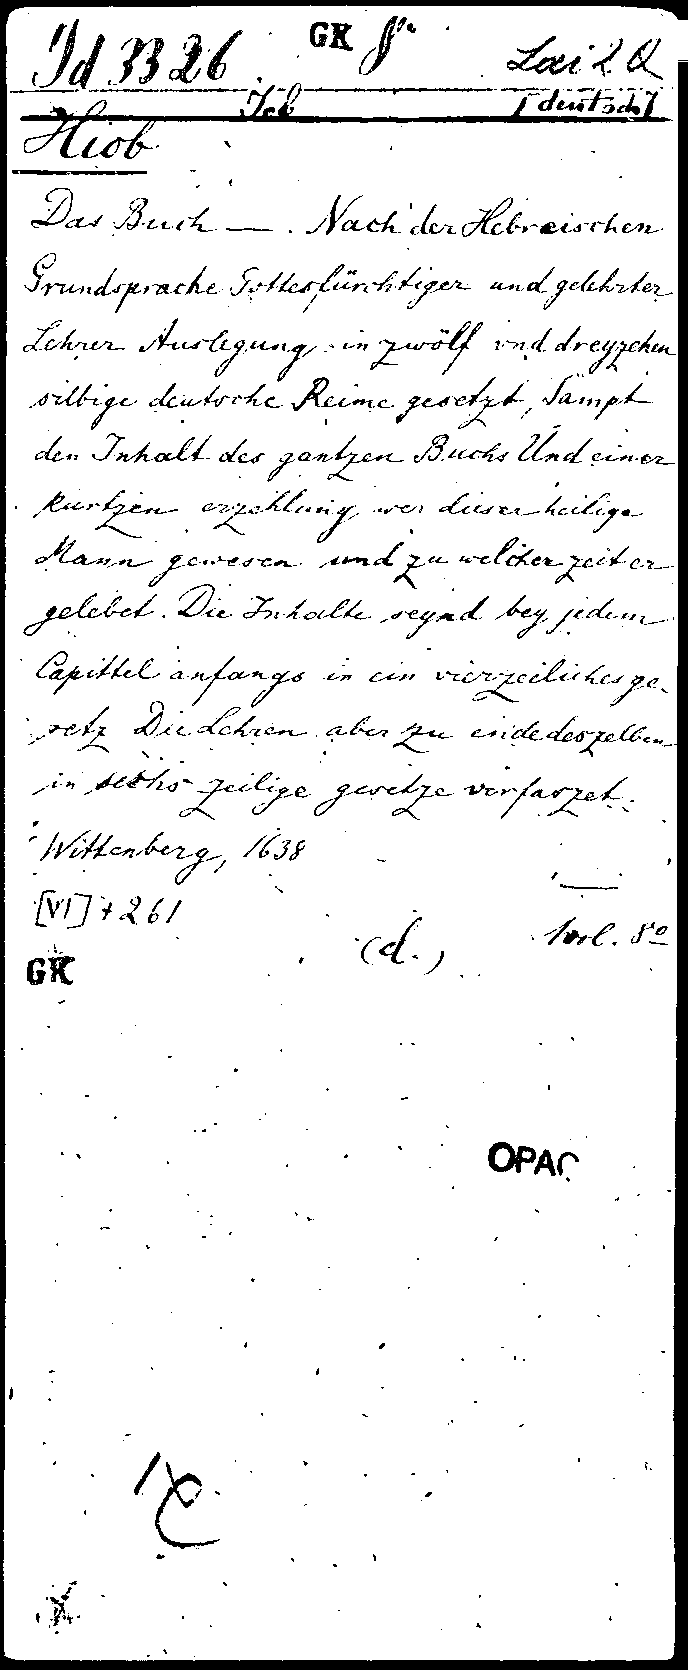 Id 3326 GK 8°
Job [deutsch]
Hiob
Das Buch —. Nach der Hebreischen
Grundsprache Gottesfürchtiger und gelehrter
Lehrer Auslegung in zwölf vnd dreyzehen
silbige deutsche Reime gesetzt, Sampt
den Inhalt des gantzen Buchs Und einer
kurtzen erzehlung wer dieser heilige
Mann gewesen und zu welcher zeit er
gelebet. Die Inhalte seynd bey jedem
Capittel anfangs in ein vierzeiliches ge-
setz Die Lehren aber zu ende deszelben
in sechs zeilige gesetze verfaszet.
Wittenberg, 1638
[VI] + 261
(d.) 1 vol. 8°
GK
OPAC